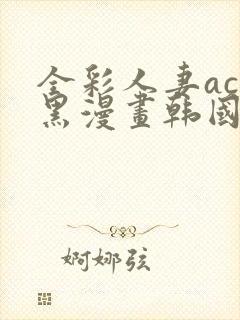 全彩人妻ac
黑漫畫韩國
婀娜弦